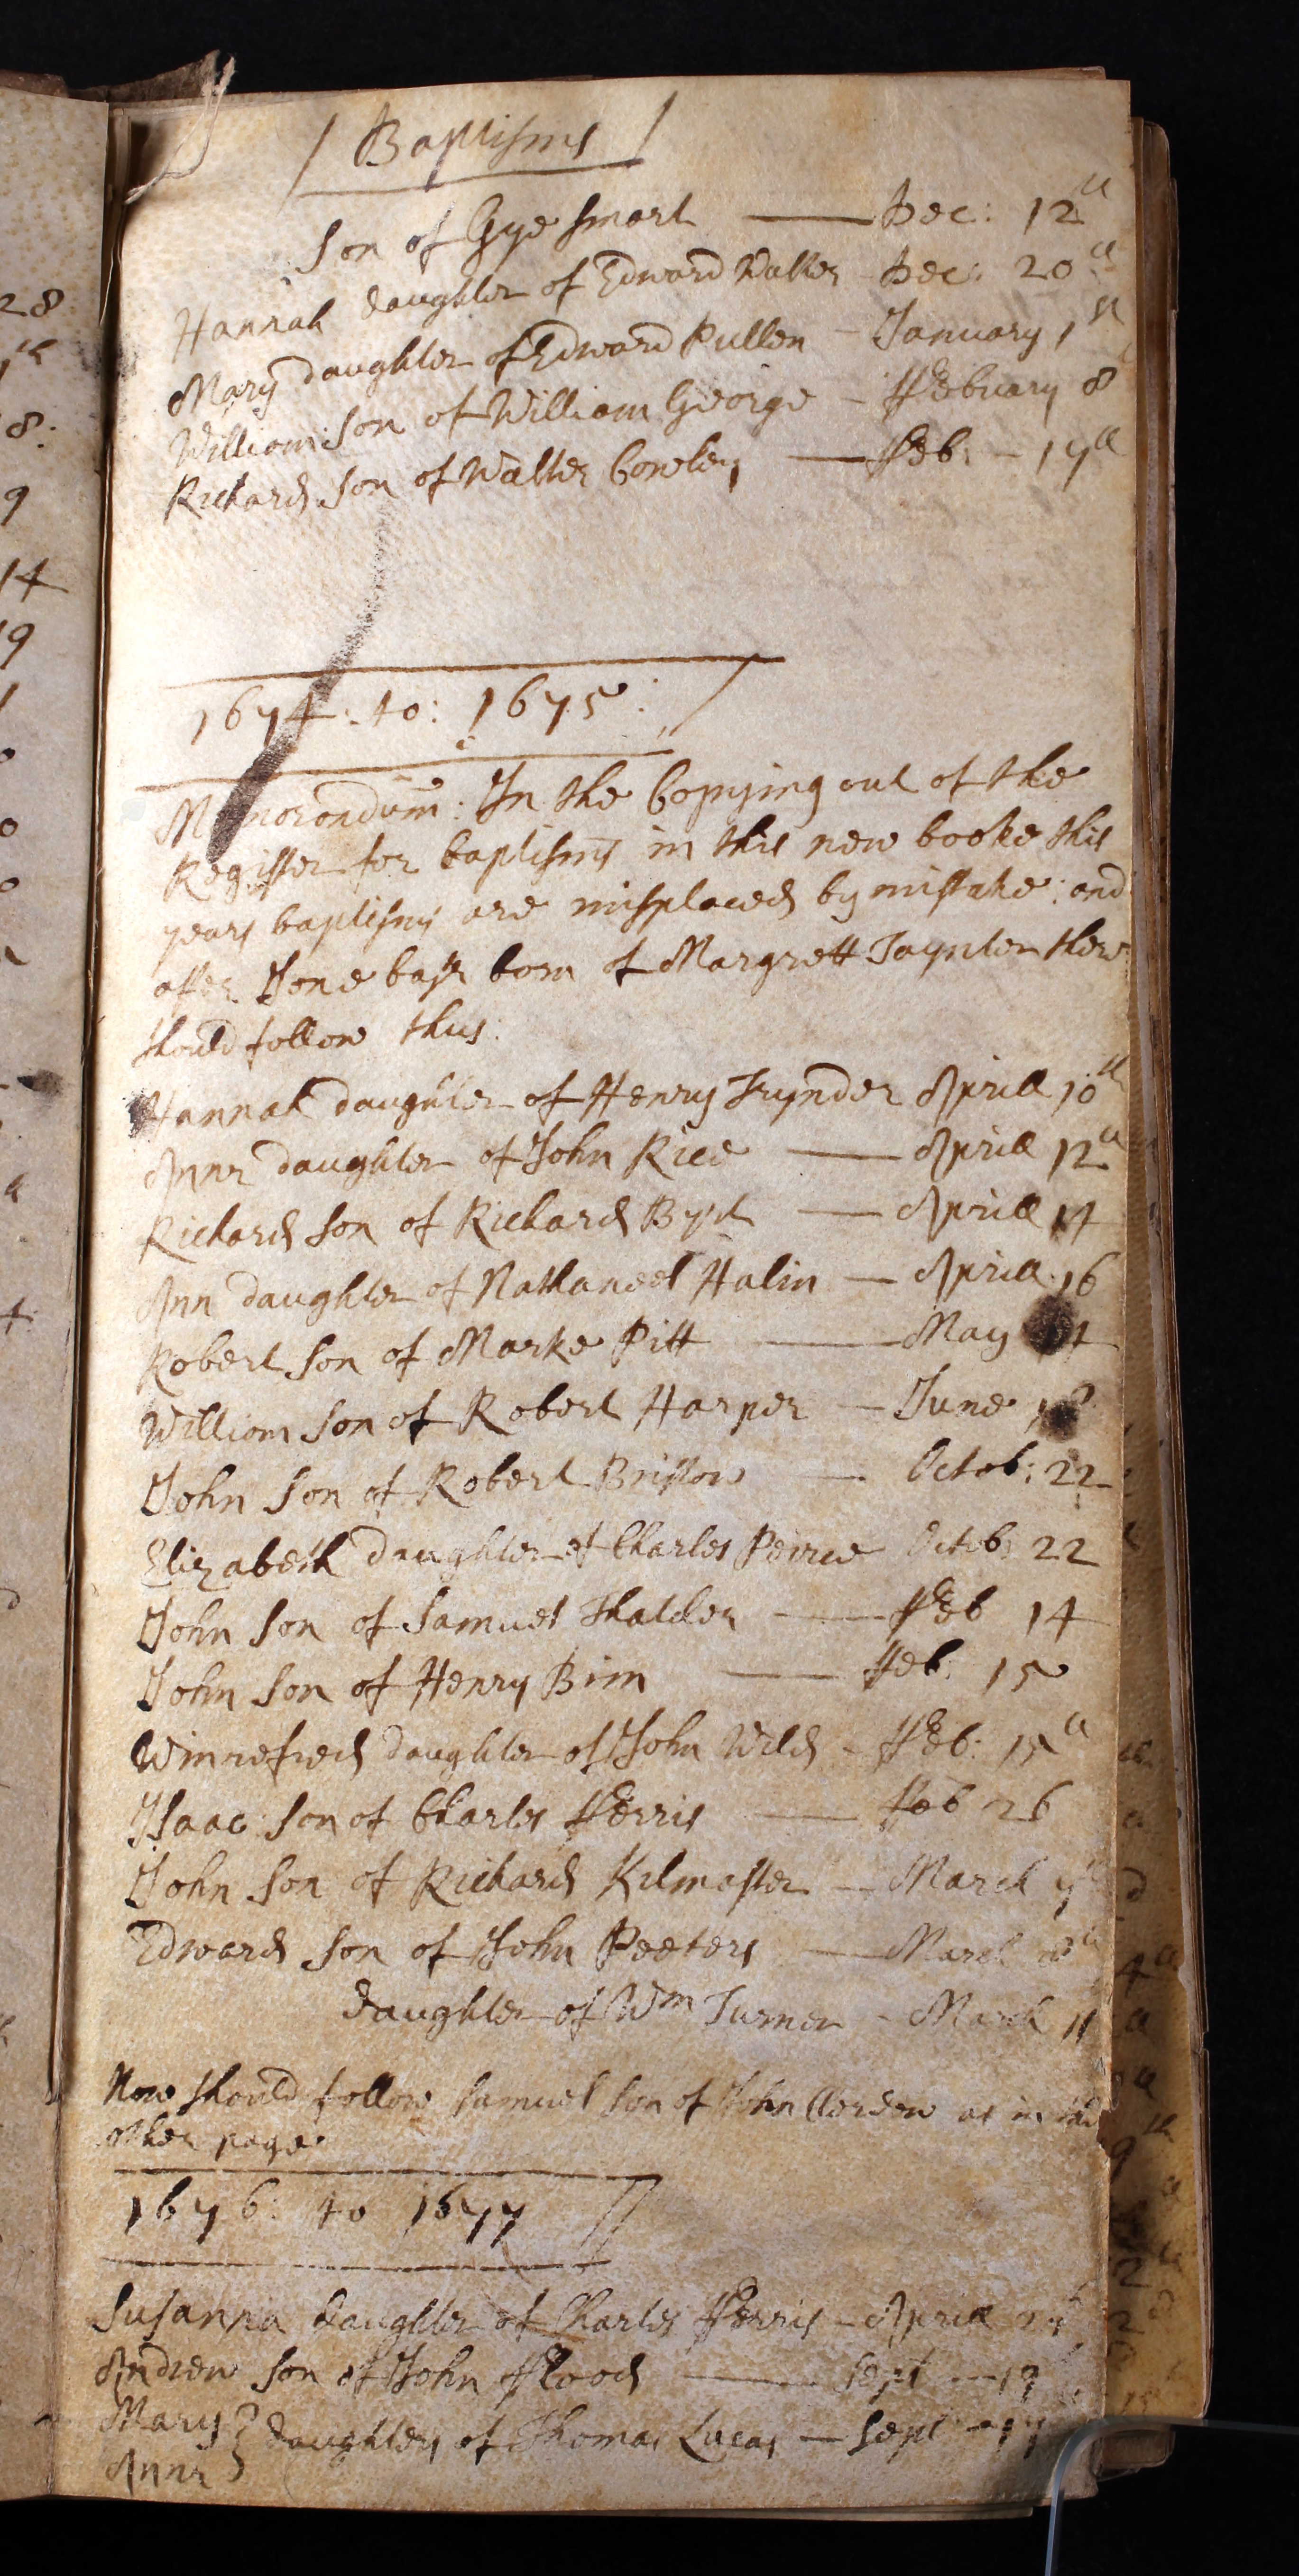 Baptisms
Son of Gye Smart — Dec: 12th
Hannah daughter of Edward Walker Dec: 20th
Mary daughter of Edward Pullen - January 1st
William son of William George - ffebuary 8
Richard son of Walter Cowley — ffeb: - 17th
1674: to: 1675:
Memorandum: In the Copying out of the
Register for baptisms in this new booke this
years baptisms are misplaced by mistake: and
after Jone base born of Margrett Taynter there
should follow thus:
Hannah daughter of Henry Trynder Aprill 10th
Anne daughter of John Rice — Aprill 12th
Richard son of Richard Byrd — Aprill 14
Ann daughter of Nathaneel Halin — Aprill 16
Robert son of Marke Pitt — May
William son of Robert Harper — June
John son of Robert Bristow — Octob: 22
Elizabeth daughter of Charles Peirce Octob: 22
John son of Samuel Thatcher — ffeb 14
John son of Henry Bim — ffeb: 15
Winnefred daughter of John Wild - ffeb: 15th
Isaac son of Charles fferris — ffeb 26
John son of Richard Kilmaster — March 7
Edward son of John Peeters — March
daughter of Wm Turner - March 11
Now should follow Samuel son of John as in the
other page
1676: to 1677
Susanna daughter of Charles fferris - Aprill
Andrew son of John fflood — Sept — 17
Mary } daughters of Thomas Lucas — Sept - 17
Anne